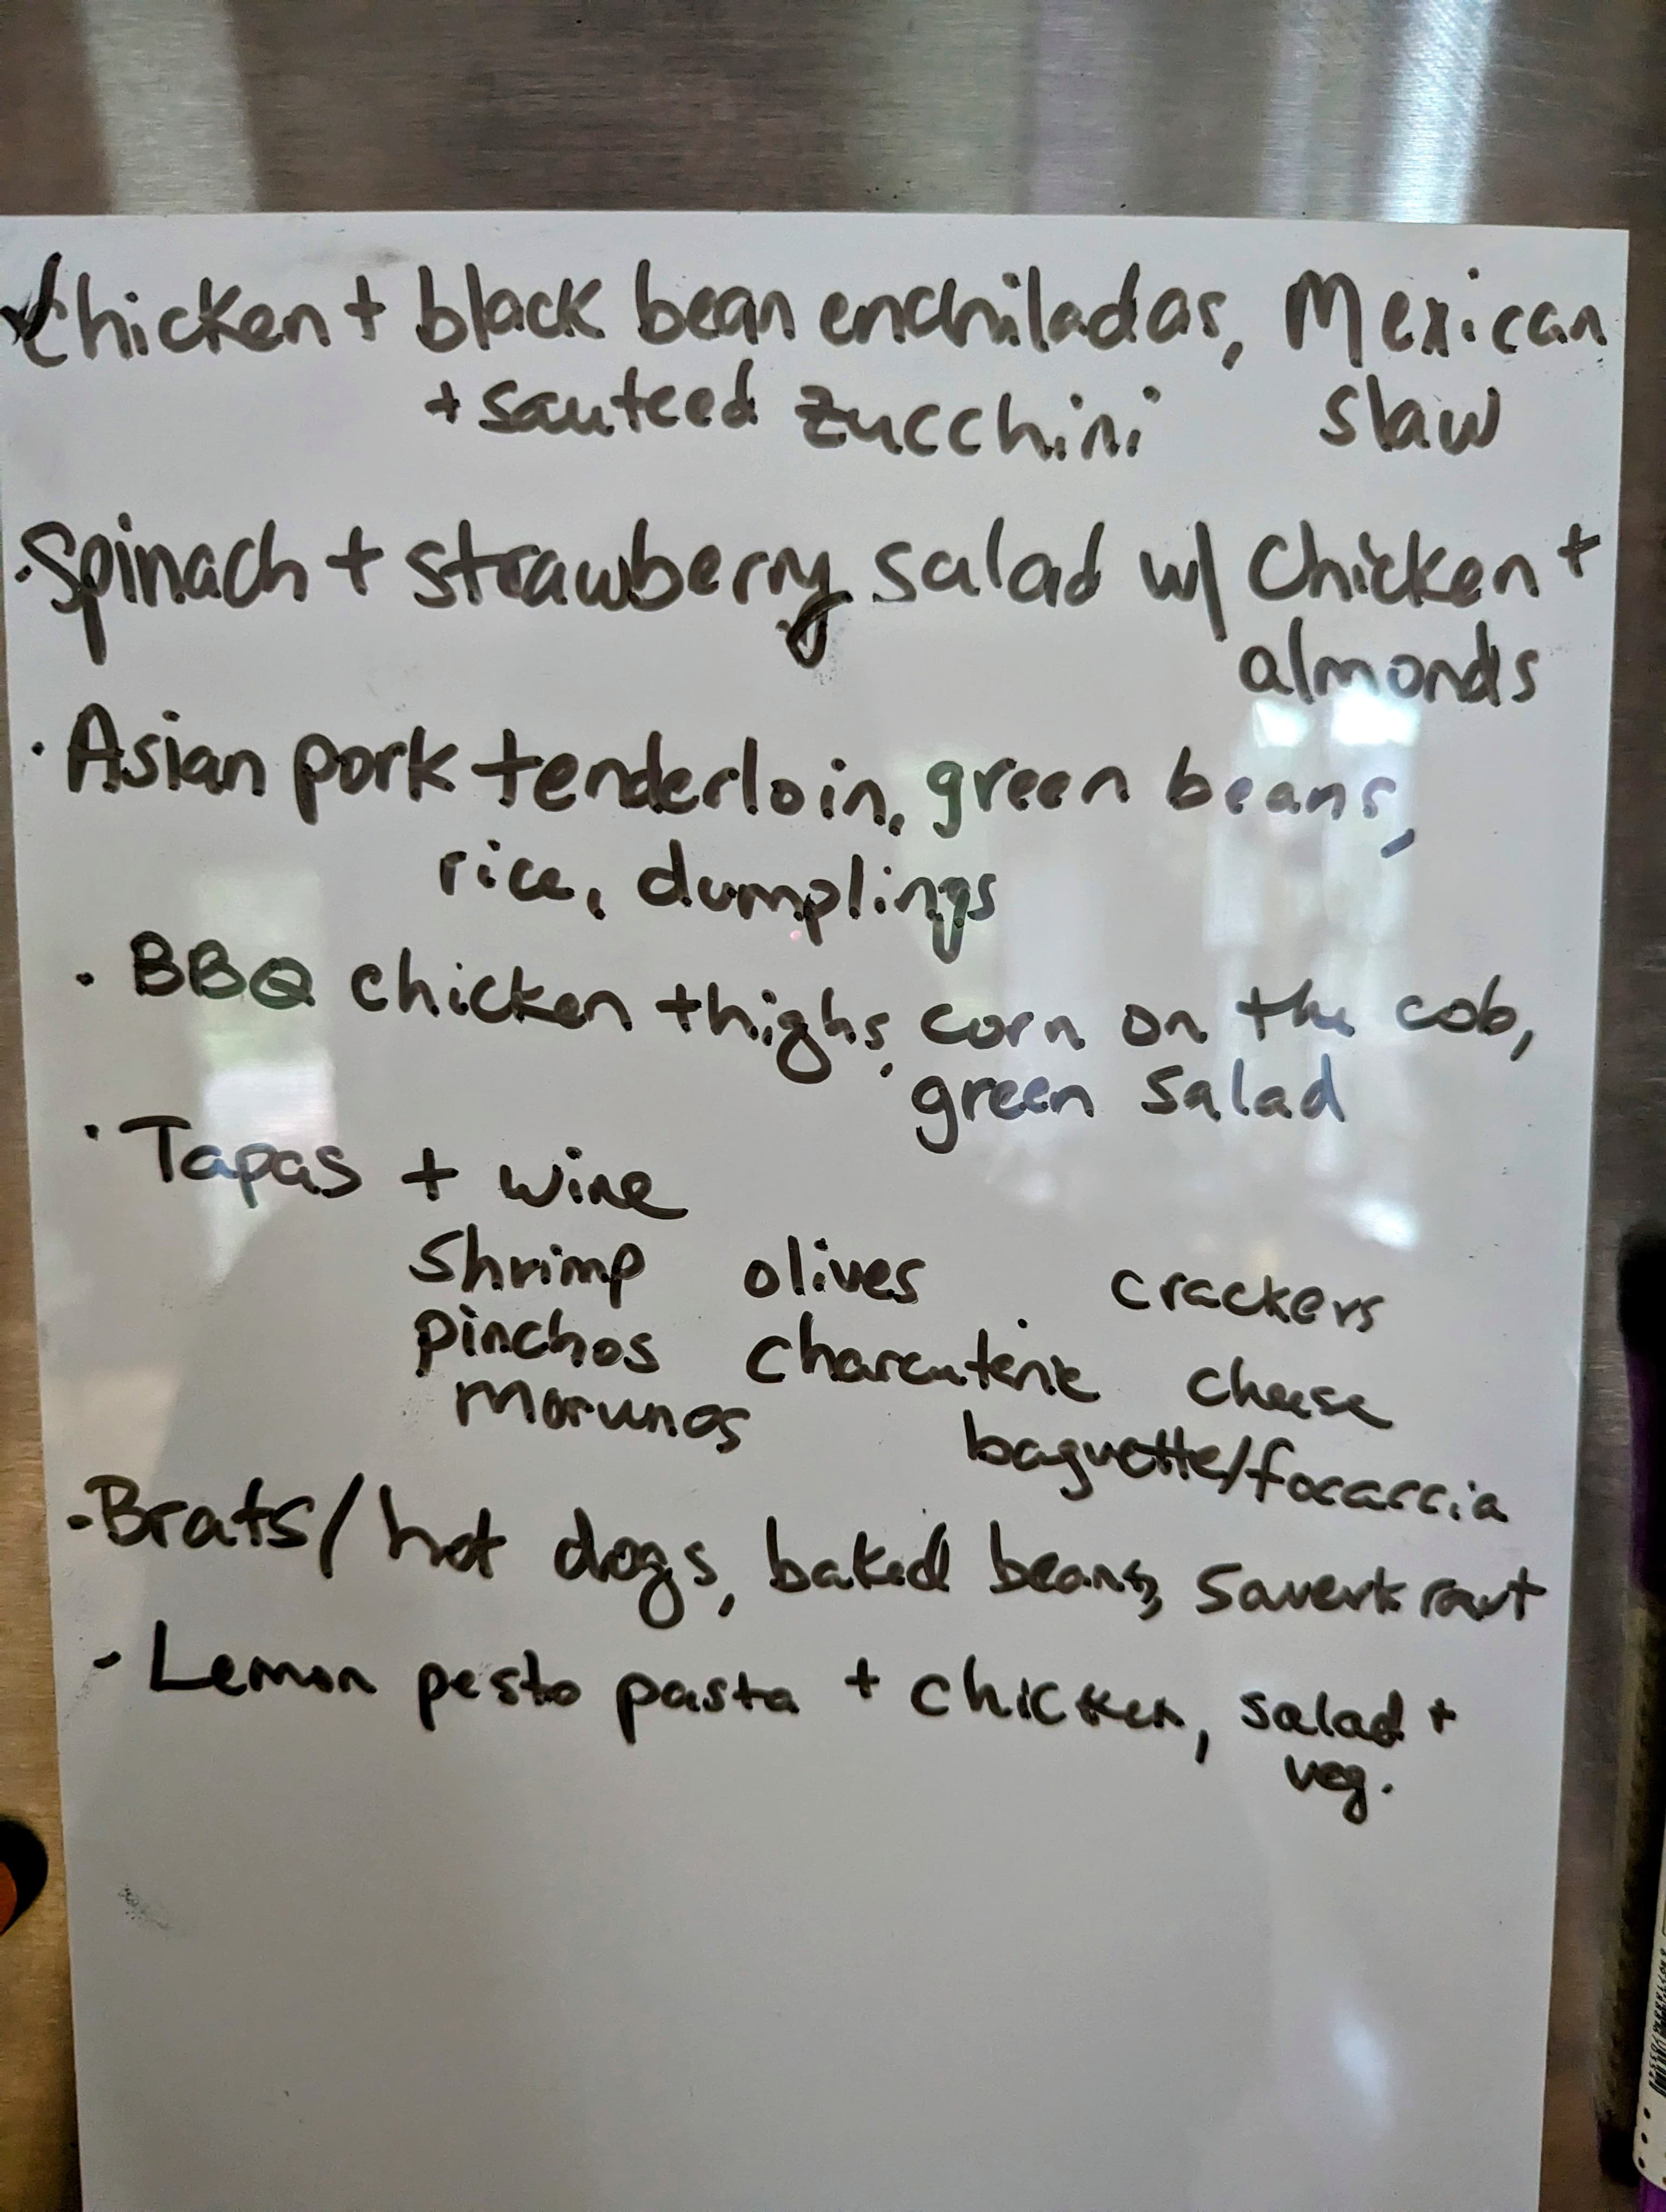 Chicken + black bean enchiladas, Mexican
+ sauteed zucchini slaw
· Spinach + strawberry salad w/ chicken +
almonds
· Asian pork tenderloin, green beans,
rice, dumplings
· BBQ chicken thighs, corn on the cob,
green salad
· Tapas + wine
Shrimp olives crackers
pinchos charcuterie cheese
morunos baguette/focaccia
- Brats/hot dogs, baked beans, sauerkraut
- Lemon pesto pasta + chicken, salad +
veg.